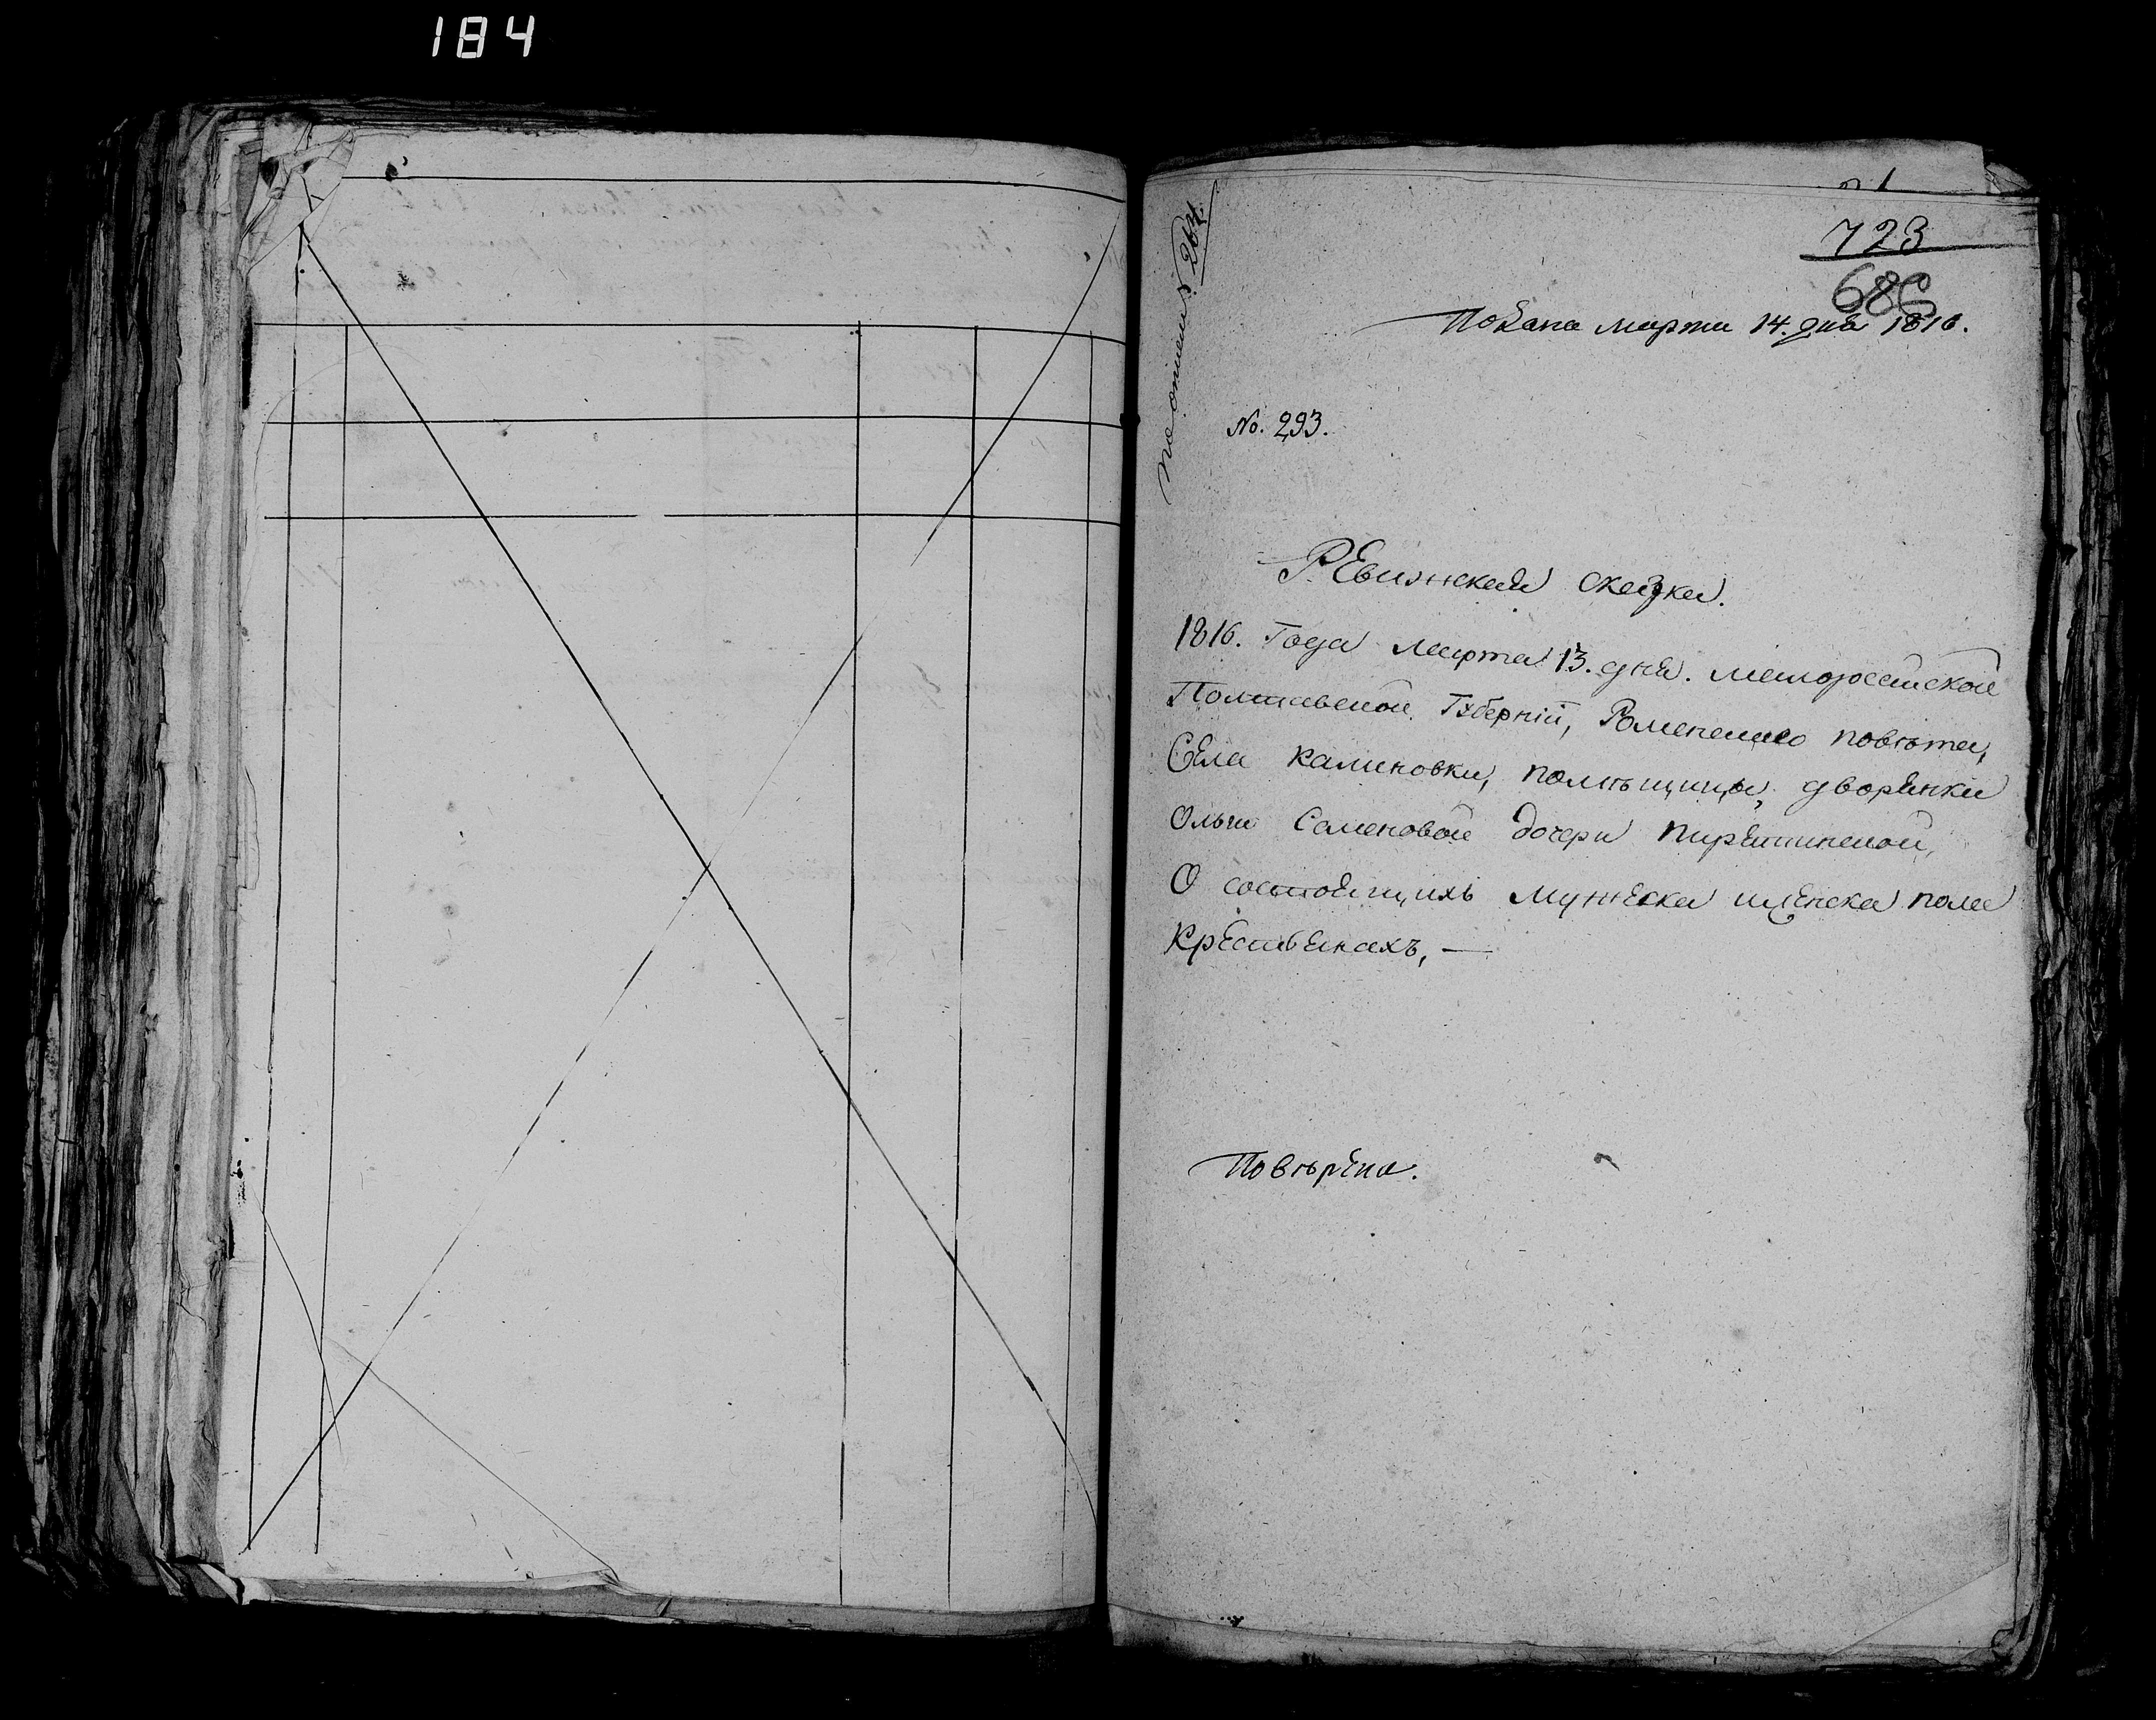 184
723
686
Подана марта 14. дня 1816.
по описи № 264.
No. 293.
Ревизская сказка.
1816. Года марта 13. дня. малоросейской
Полтавской Губерніи, Роменского повѣта,
Села калиновки, помѣщицы, дворянки
Ольги Семеновой дочери пирятинской,
О состоящихъ мужеска иженска пола
Крестьянахъ, —
Повѣрена.